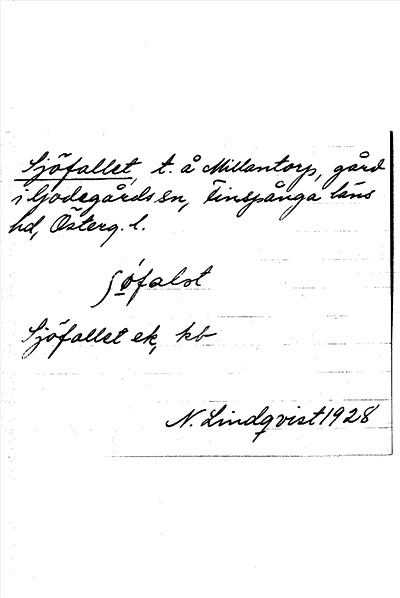 Sjöfallet, t. å Millantorp, gård
i Godegårds sn, Finspånga läns
hd, Österg. l.
ʃøfalət
Sjöfallet ek, kb
N. Lindqvist 1928